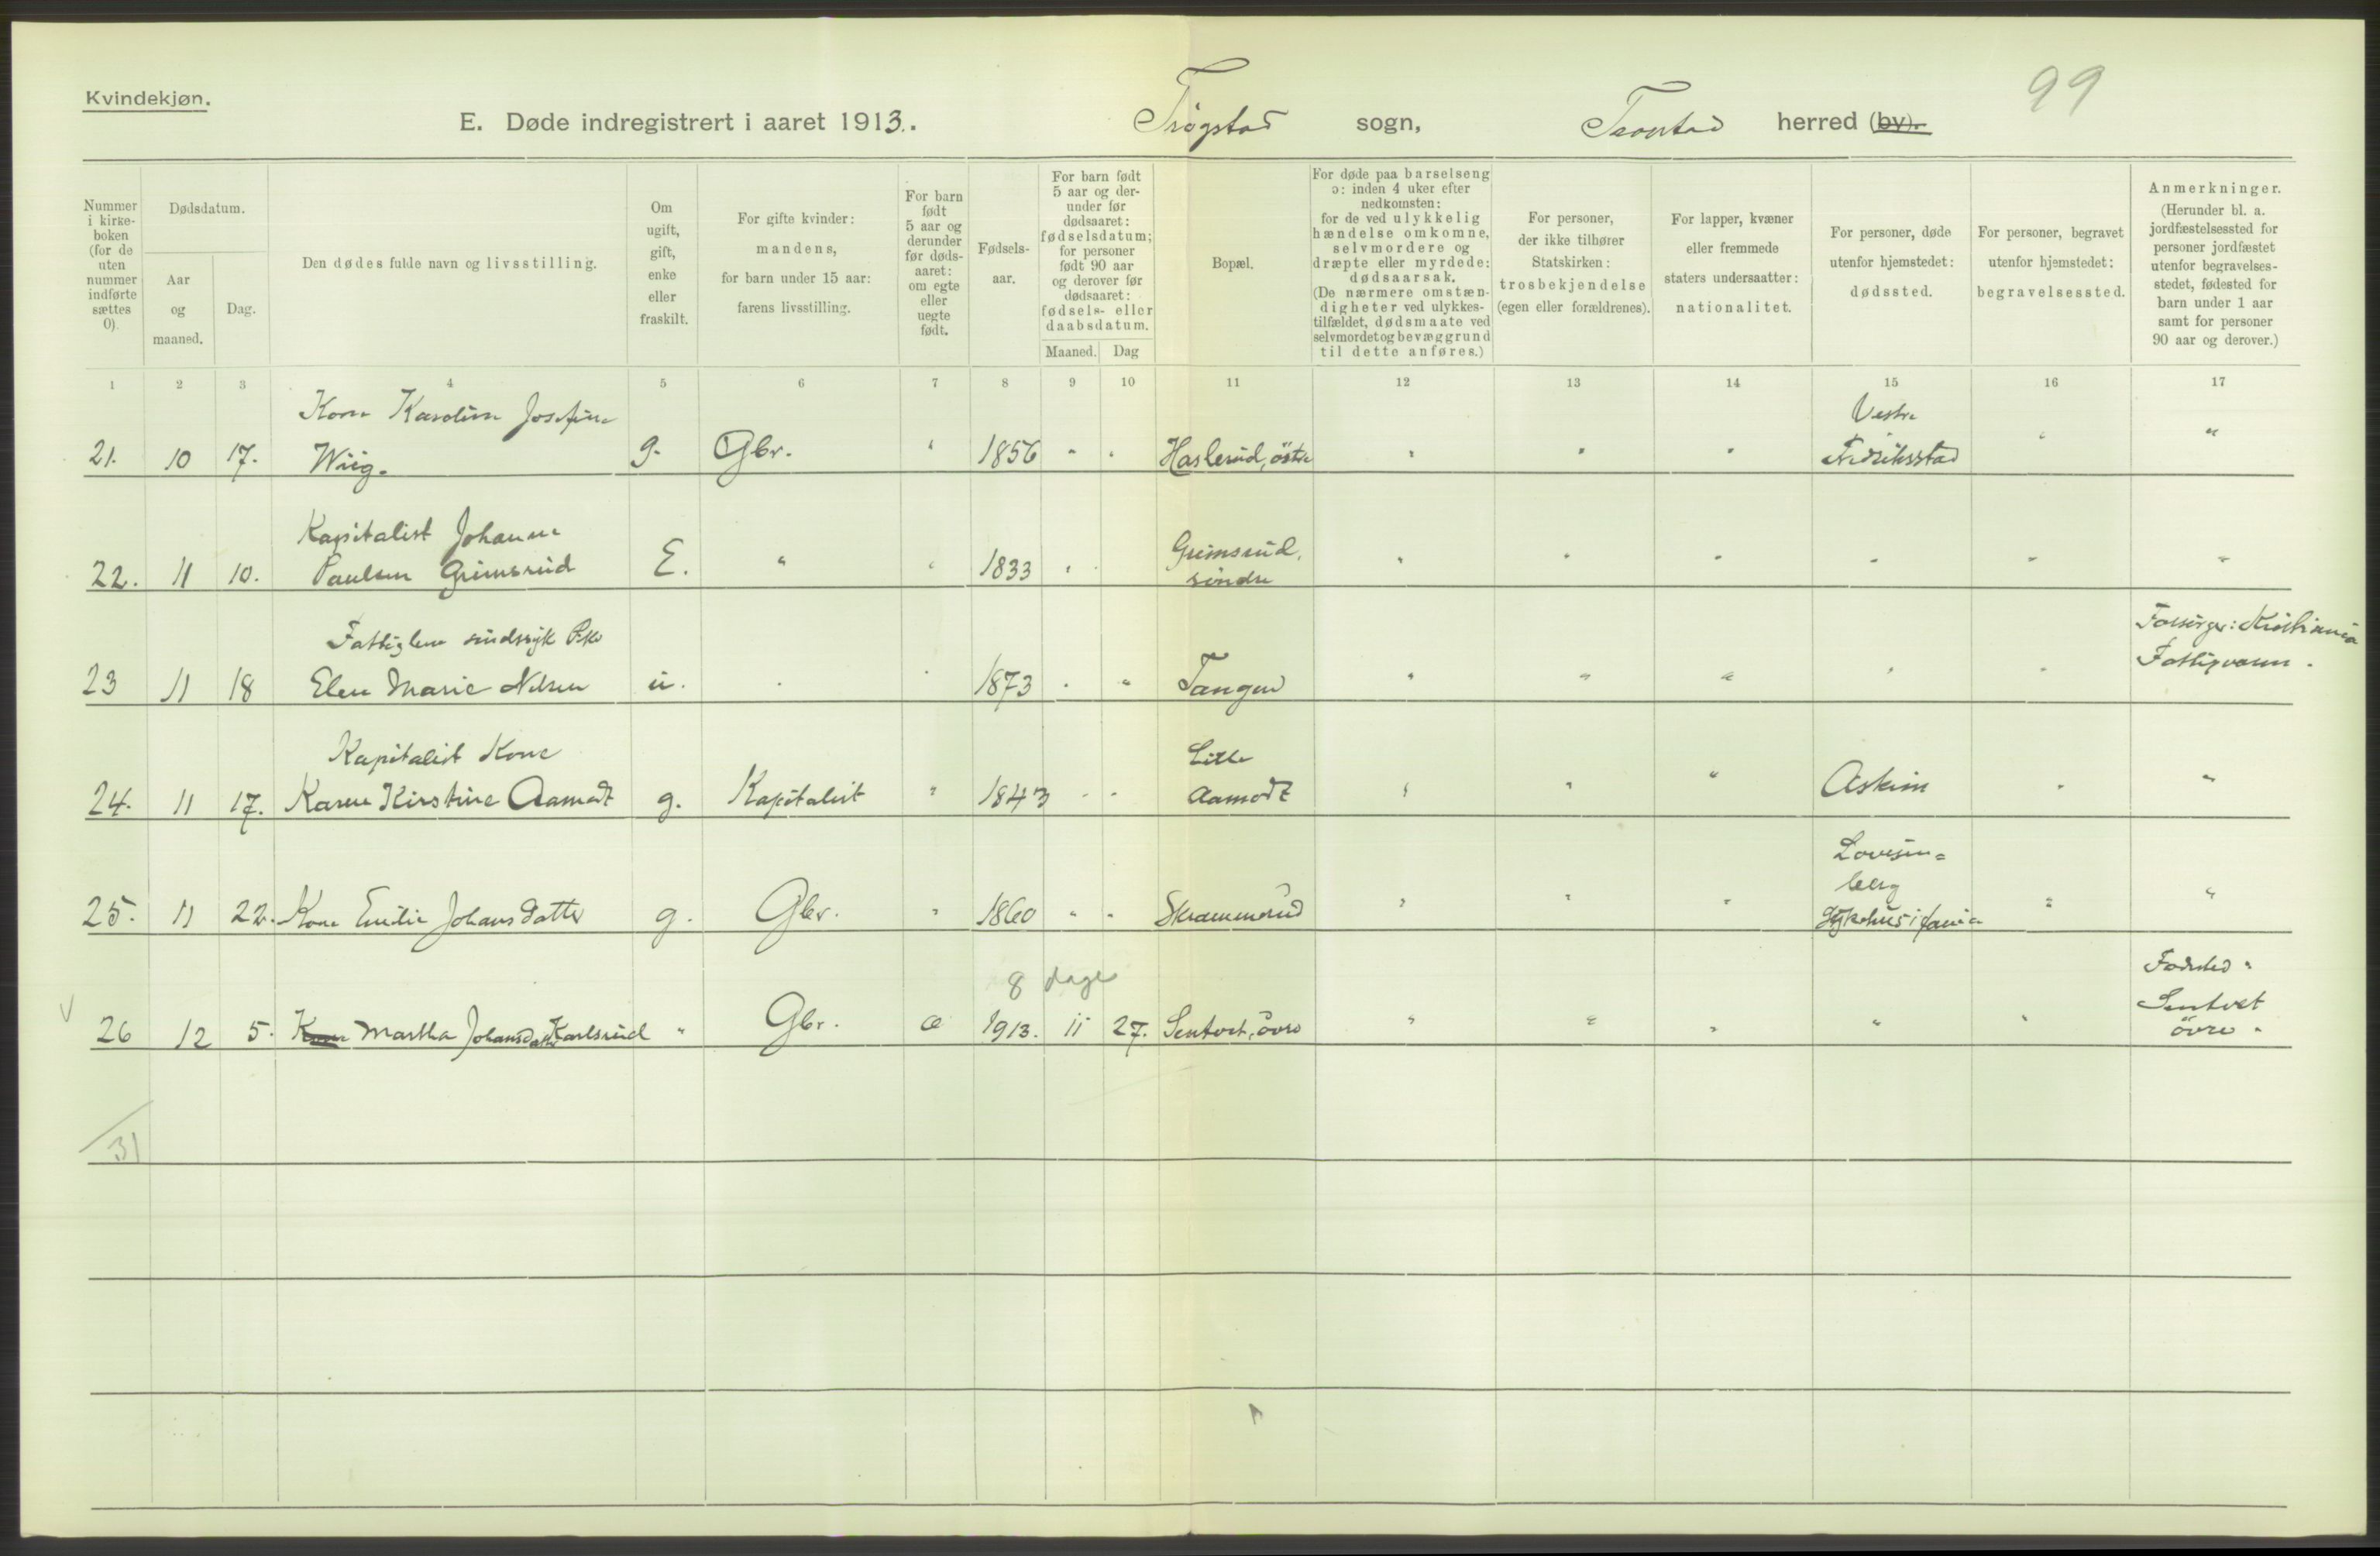 Kvindekjøn.
99
E. Døde indregistrert i aaret 1913.
Trøgstad sogn, Trøgstad herred (by).
Nummer i kirke-boken (for de uten nummer indførte sættes 0).
Dødsdatum.
Aar og maaned.
Dag.
Den dødes fulde navn og livsstilling.
Om ugift, gift, enke eller fraskilt.
For gifte kvinder: mandens, for barn under 15 aar: farens livsstilling.
For barn født 5 aar og derunder før døds-aaret: om egte eller uegte født.
Fødsels-aar.
For barn født 5 aar og der-under før dødsaaret: fødselsdatum; for personer født 90 aar og derover før dødsaaret: fødsels- eller daabsdatum.
Maaned. Dag
Bopæl.
For døde paa barselseng ɔ: inden 4 uker efter nedkomsten: for de ved ulykkelig hændelse omkomne, selvmordere og dræpte eller myrdede: dødsaarsak. (De nærmere omstæn-digheter ved ulykkes-tilfældet, dødsmaate ved selvmordet og bevæggrund til dette anføres.)
For personer, der ikke tilhører Statskirken: trosbekjendelse (egen eller forældrenes).
For lapper, kvæner eller fremmede staters undersaatter: nationalitet.
For personer, døde utenfor hjemstedet: dødssted.
For personer, begravet utenfor hjemstedet: begravelsessted.
Anmerkninger. (Herunder bl. a. jordfæstelsessted for personer jordfæstet utenfor begravelses-stedet, fødested for barn under 1 aar samt for personer 90 aar og derover.)
1 2 3 4 5 6 7 8 9 10 11 12 13 14 15 16 17
Kone Karoline Josefine
Vestre
21. 10 17. Wiig. g. Gbr. " 1856 " " Haslerud, östre " " " Fredriksstad " "
Kapitalist Johanne
Grimsrud,
22. 11 10. Paulsen Grimsrud E. " " 1833 " " söndre " " " " " "
Fattiglem sindssyk Pike
Forsörger: Kristiania
23 11 18 Elen Marie Nilsen u. " " 1873 " " Tangen " " " " " Fattigvæsen.
Kapitalist Kone
Lille
24. 11 17. Karen Kirstine Aamodt g. Kapitalist " 1843 " " Aamodt " " " Askim " "
Lovisen=
berg
25. 11 22. Kone Emilie Johansdatter g. Gbr. " 1860 " " Skrammerud " " " Sykehus i Xania " "
8 dage
Födested "
Sentvet
26 12 5. Kone Martha Johansdatter Karlsrud " Gbr. æ 1913. 11 27. Sentvet, övre " " " " " övre "
31